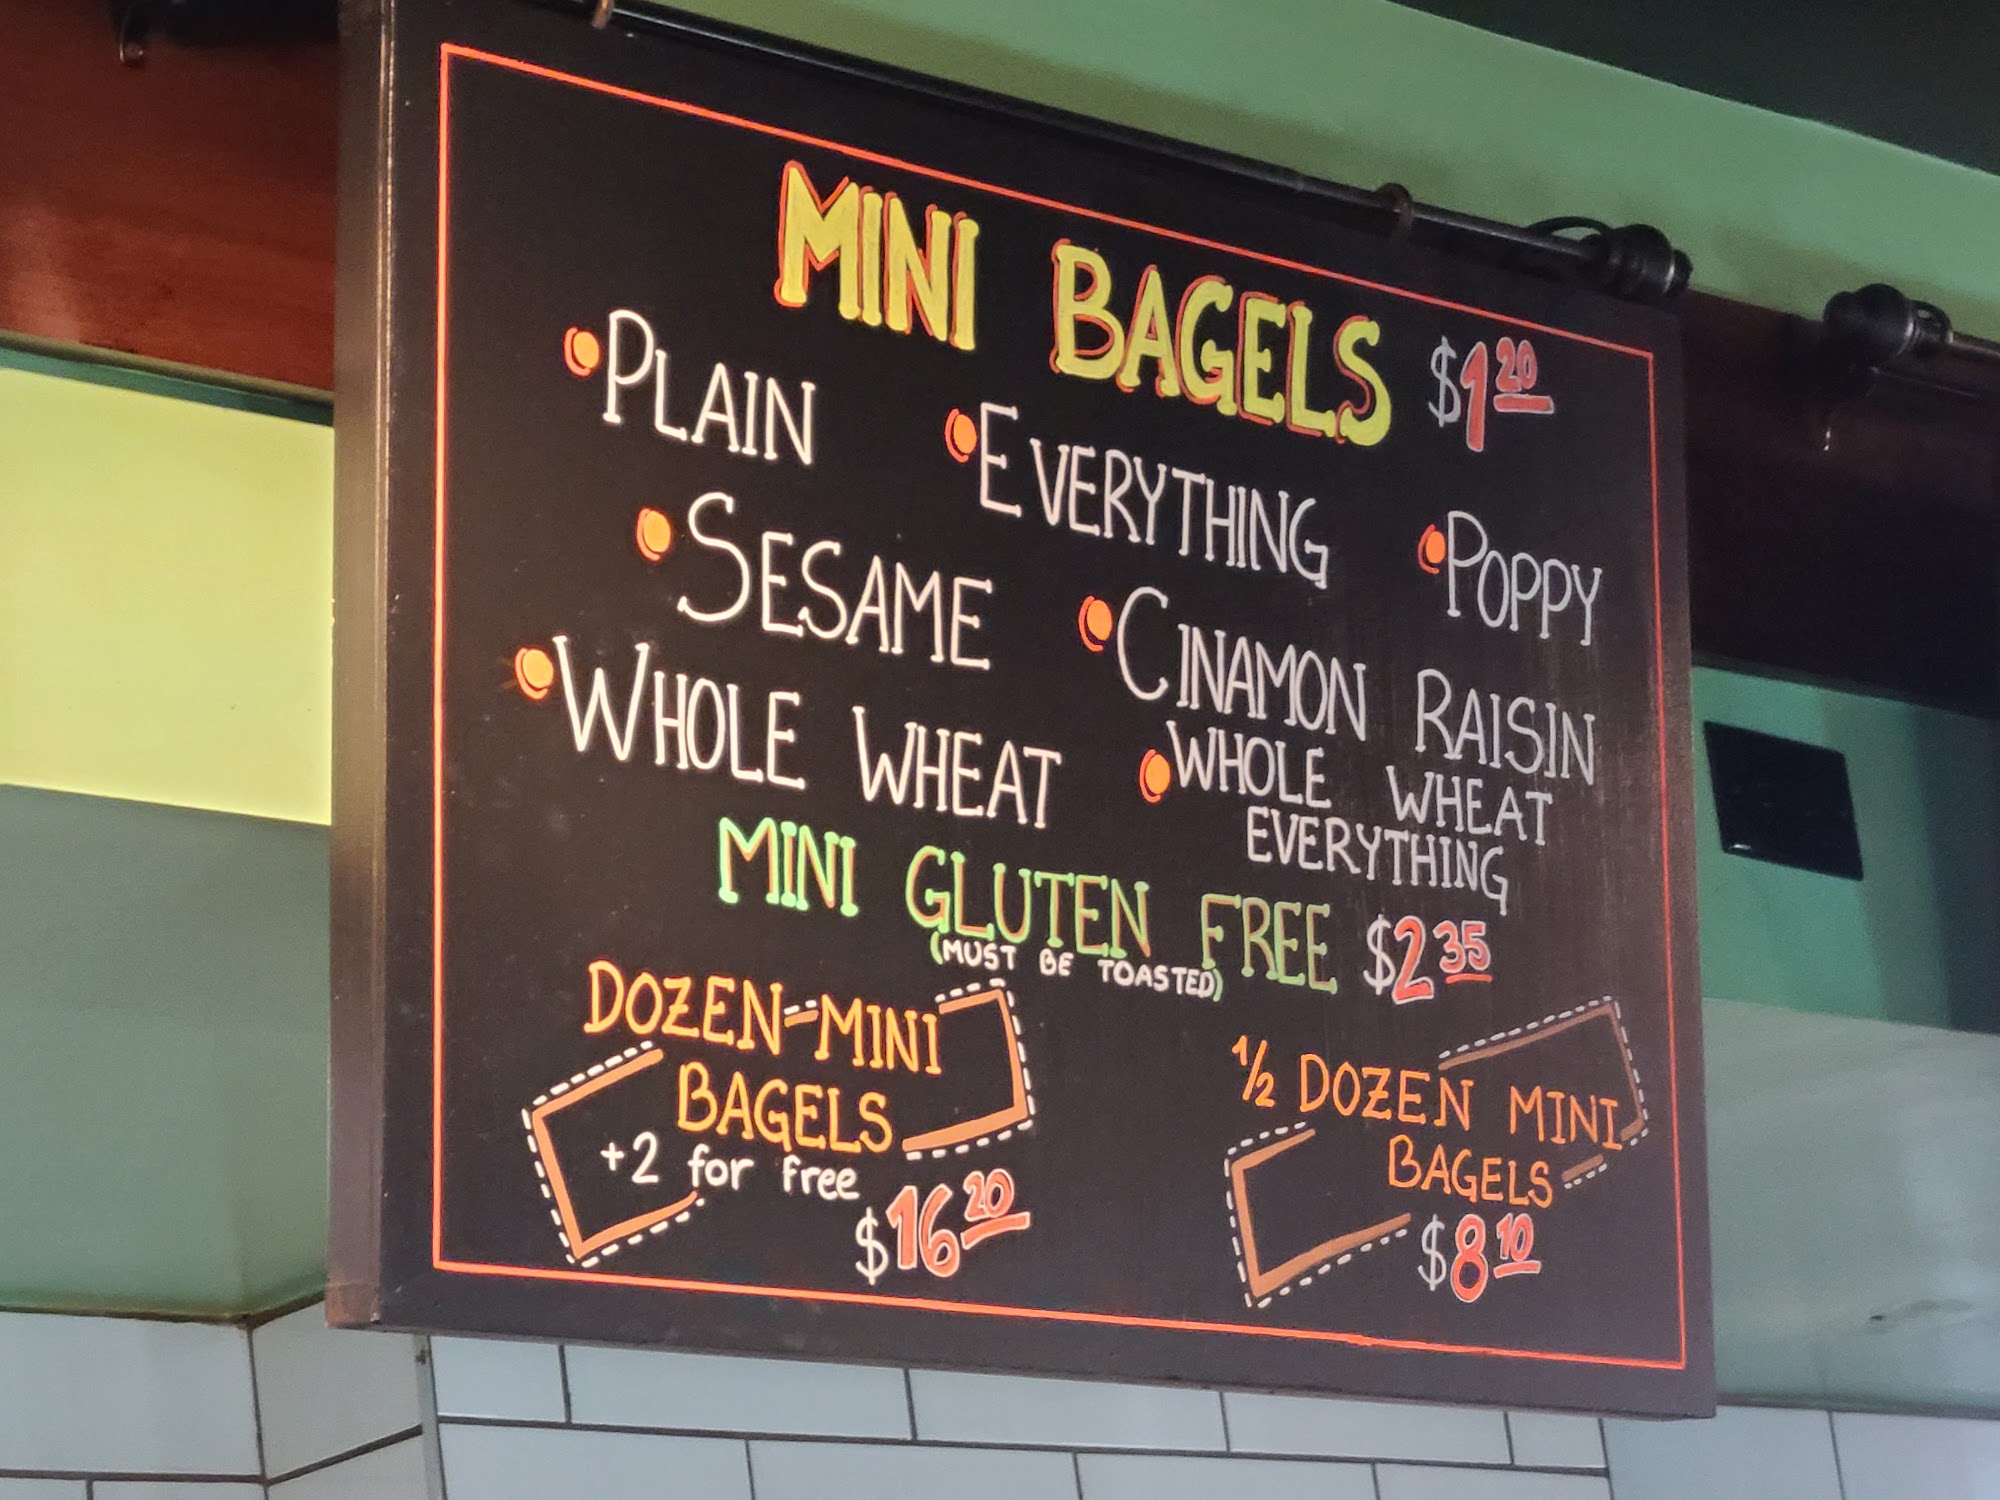 MINI BAGELS $1.20
• PLAIN • EVERYTHING • POPPY
• SESAME • CINAMON RAISIN
• WHOLE WHEAT • WHOLE WHEAT
EVERYTHING
MINI GLUTEN FREE $2.35
(MUST BE TOASTED)
DOZEN-MINI
BAGELS
+2 for free
$16.20
1/2 DOZEN MINI
BAGELS
$8.10